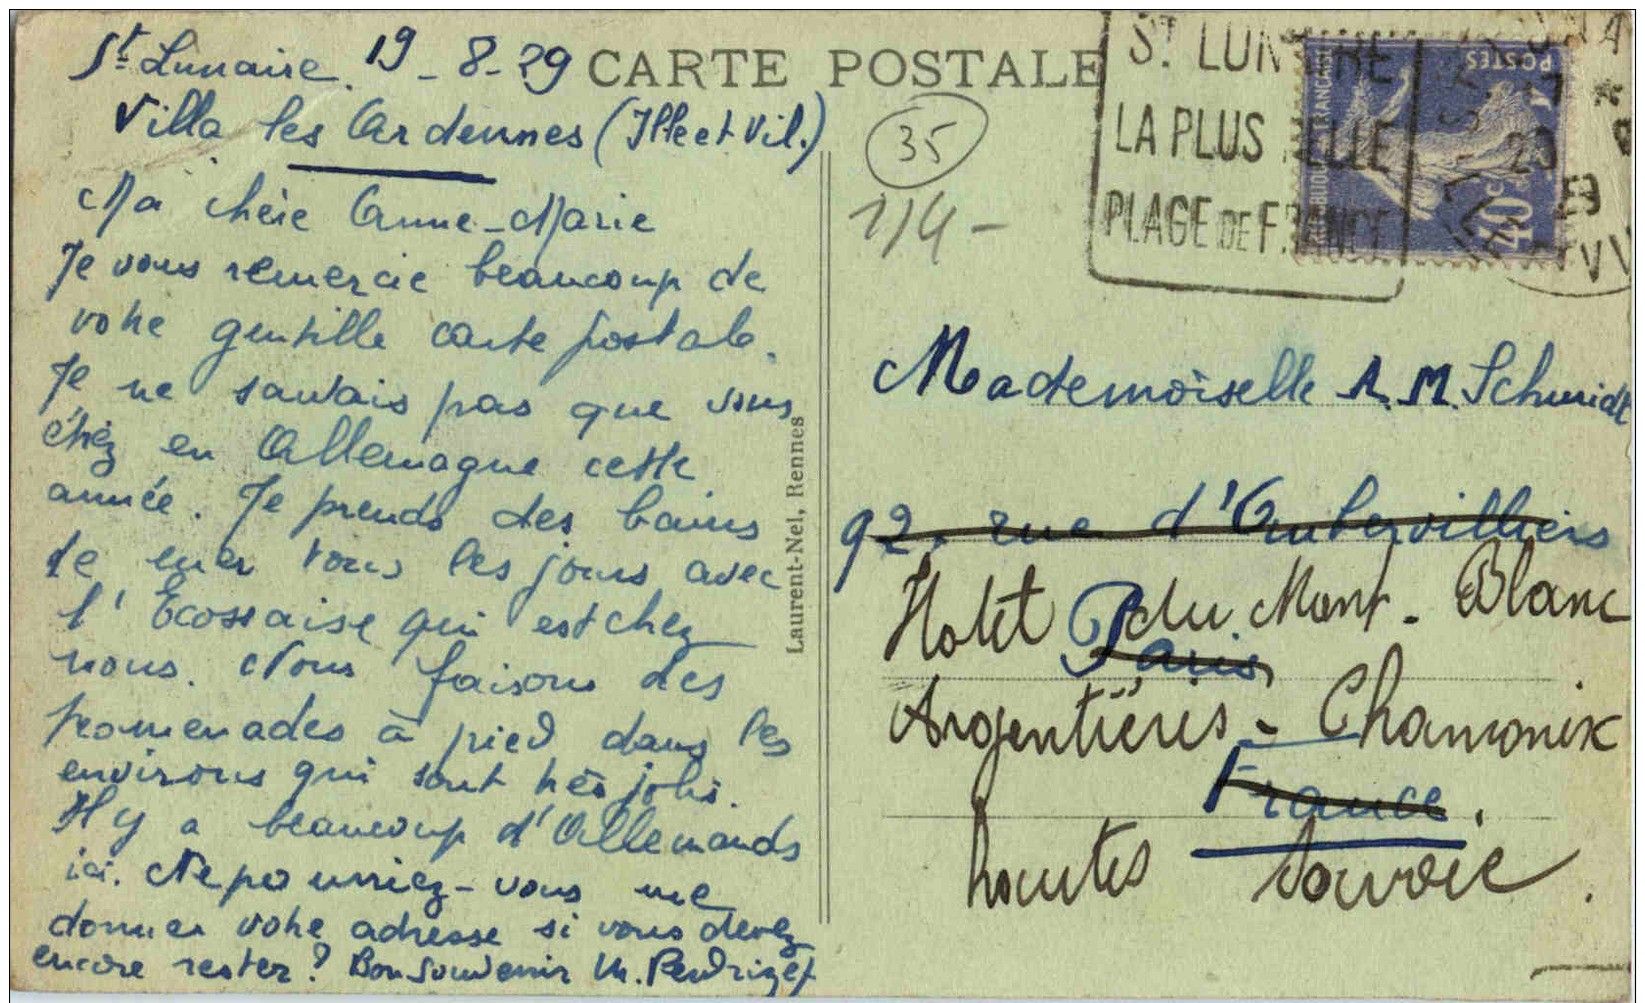 St. Lunaire. 19-8-29
Villa les Ardennes (Ille et Vil.)
Ma chère Anne-Marie
Je vous remercie beaucoup de
votre gentille carte postale.
Je ne savais pas que vous
étiez en Allemagne cette
année. Je prends des bains
de mer tous les jours avec
l'Ecossaise qui est chez
nous. Nous faisons des
promenades à pied dans les
environs qui sont très jolis.
Il y a beaucoup d'Allemands
ici. Ne pourriez-vous me
donner votre adresse si vous devez
encore rester? Bon souvenir M.
CARTE POSTALE
35
Laurent-Nel, Rennes
St. LUNAIRE
LA PLUS BELLE
PLAGE DE FRANCE
POSTES
40c
Mademoiselle A. M. Schmidt
92, rue d'Aubervilliers
Paris
France.
Hotel du Mont-Blanc
Argentières - Chamonix
hautes Savoie.